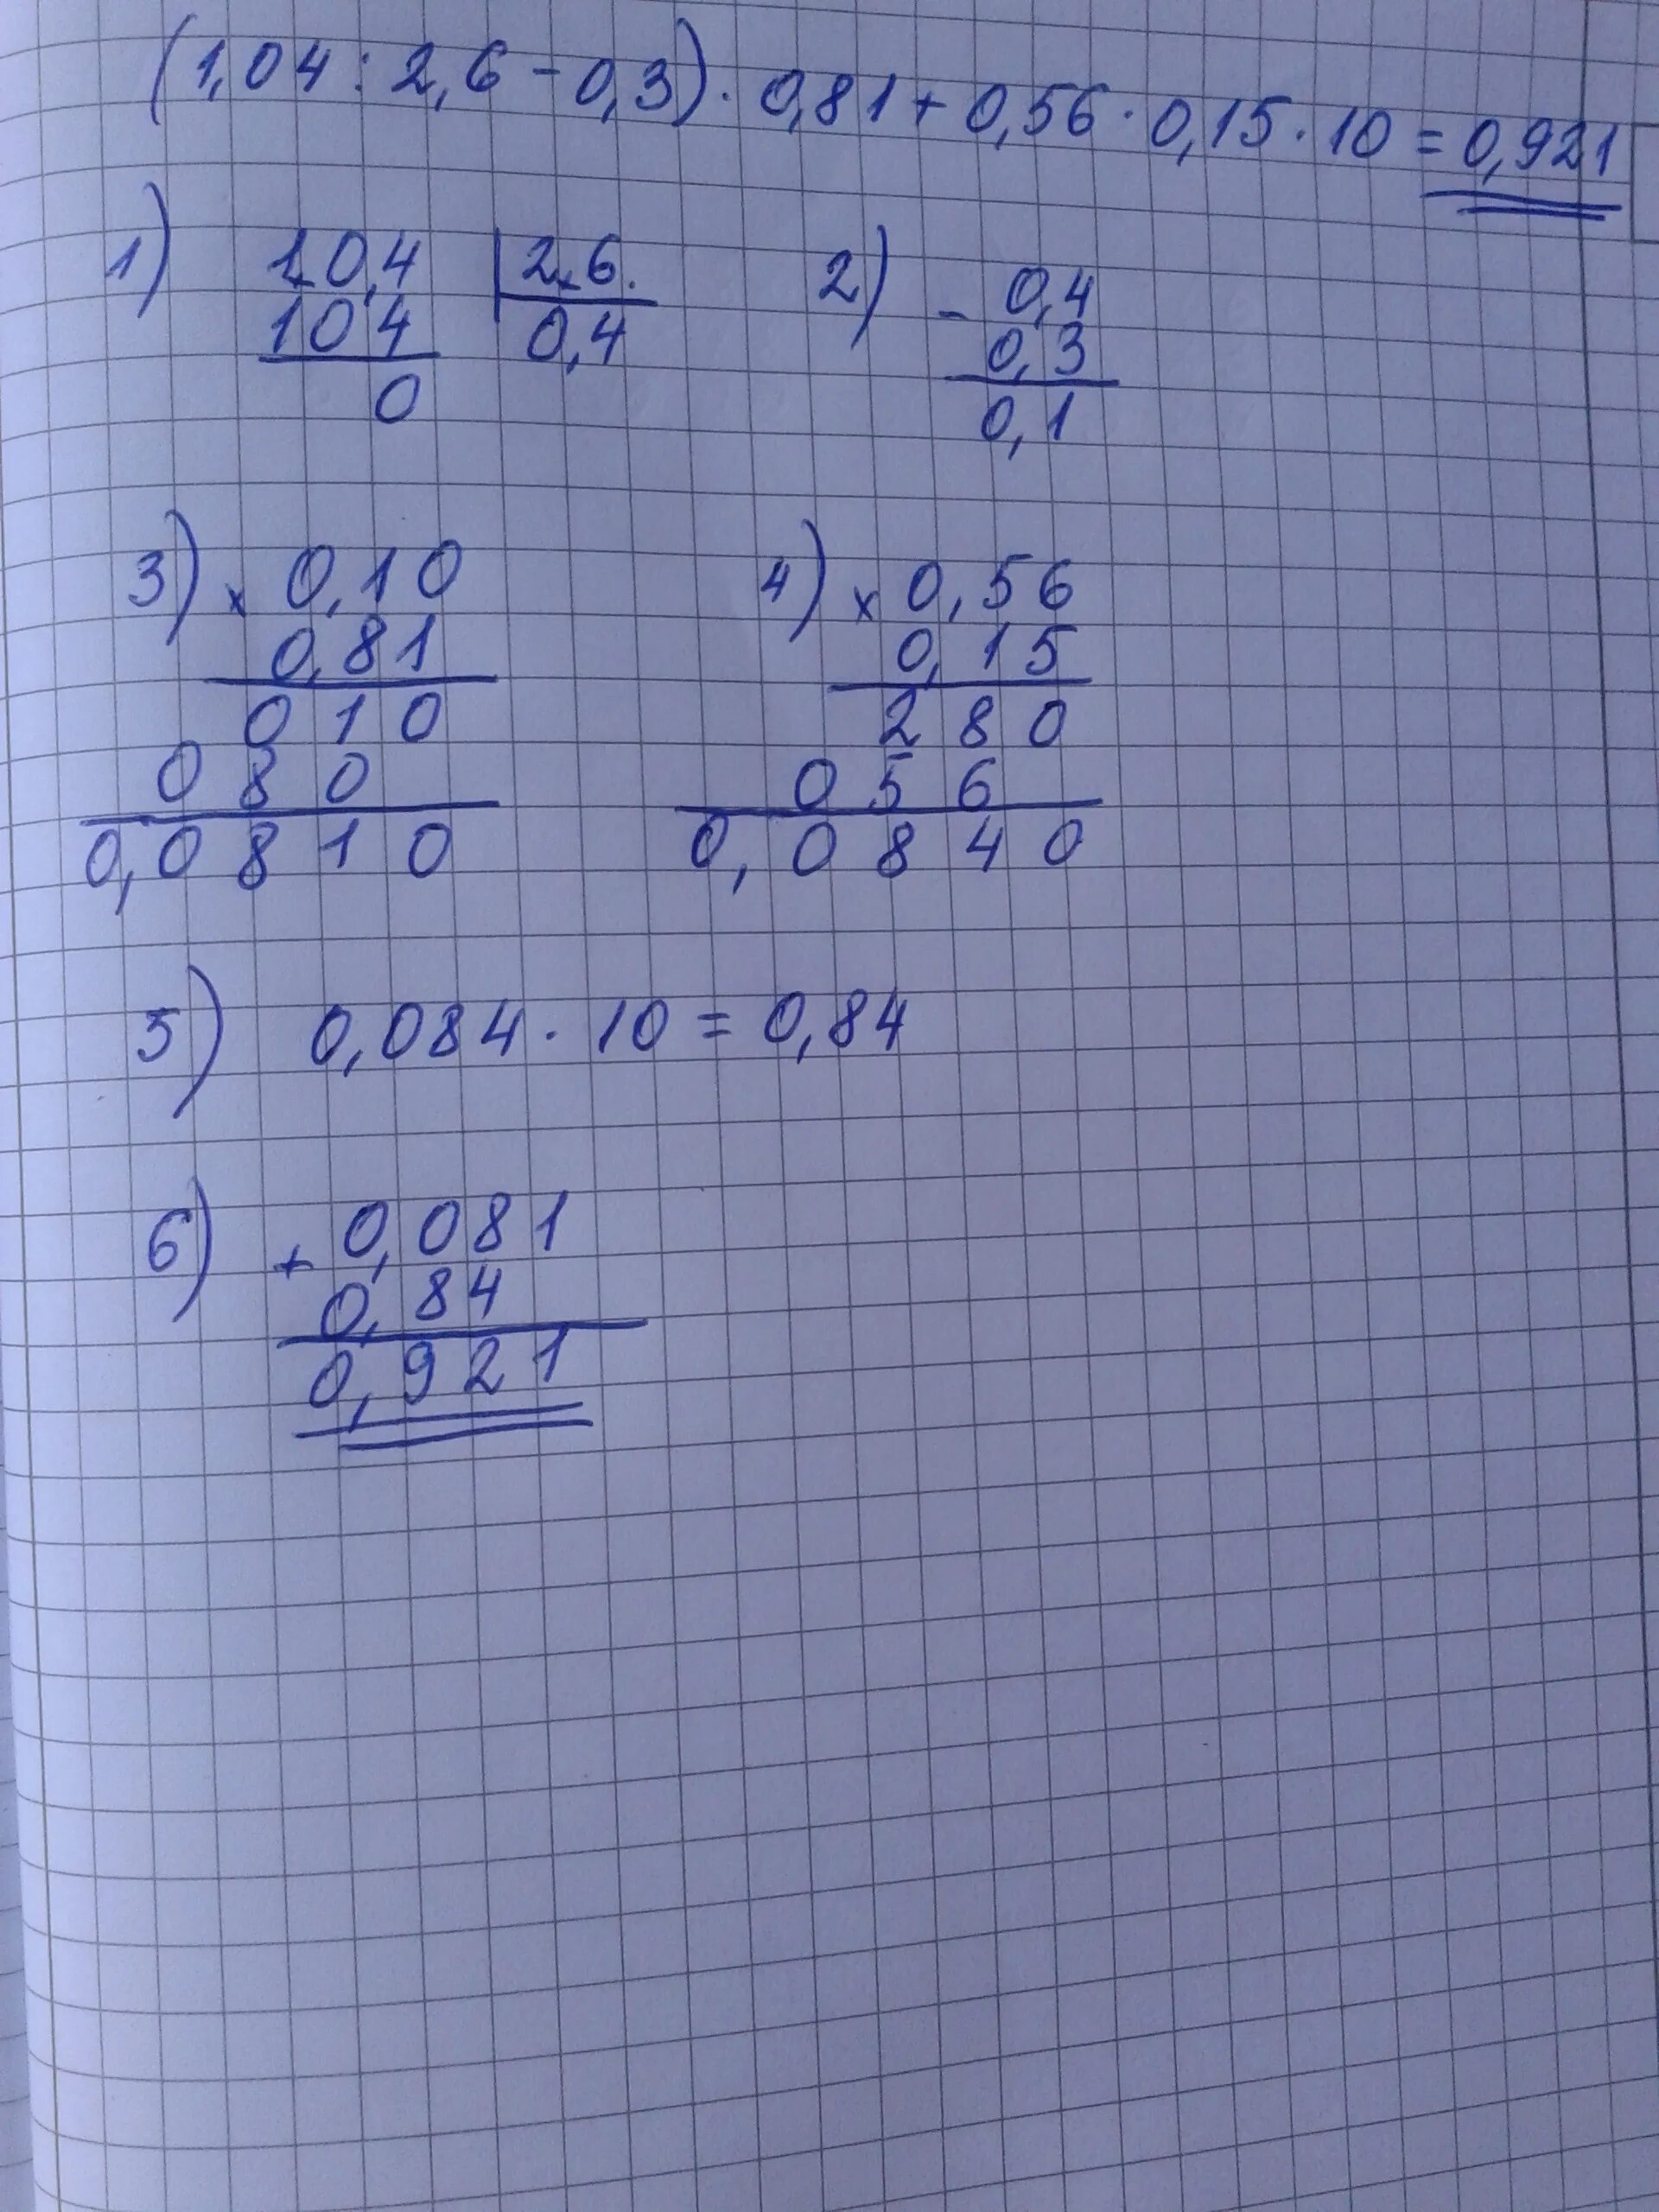 (1,04 : 2,6 - 0,3) · 0,81 + 0,56 · 0,15 · 10 = 0,921
1) 10,4 | 2,6.
104 0,4
0
2) - 0,4
0,3
0,1
3) × 0,10
0,81
0 1 0
0 8 0
0,0 8 1 0
4) × 0,56
0,15
2 8 0
0 5 6
0,0 8 4 0
5) 0,084 · 10 = 0,84
6) + 0,081
0,84
0,921